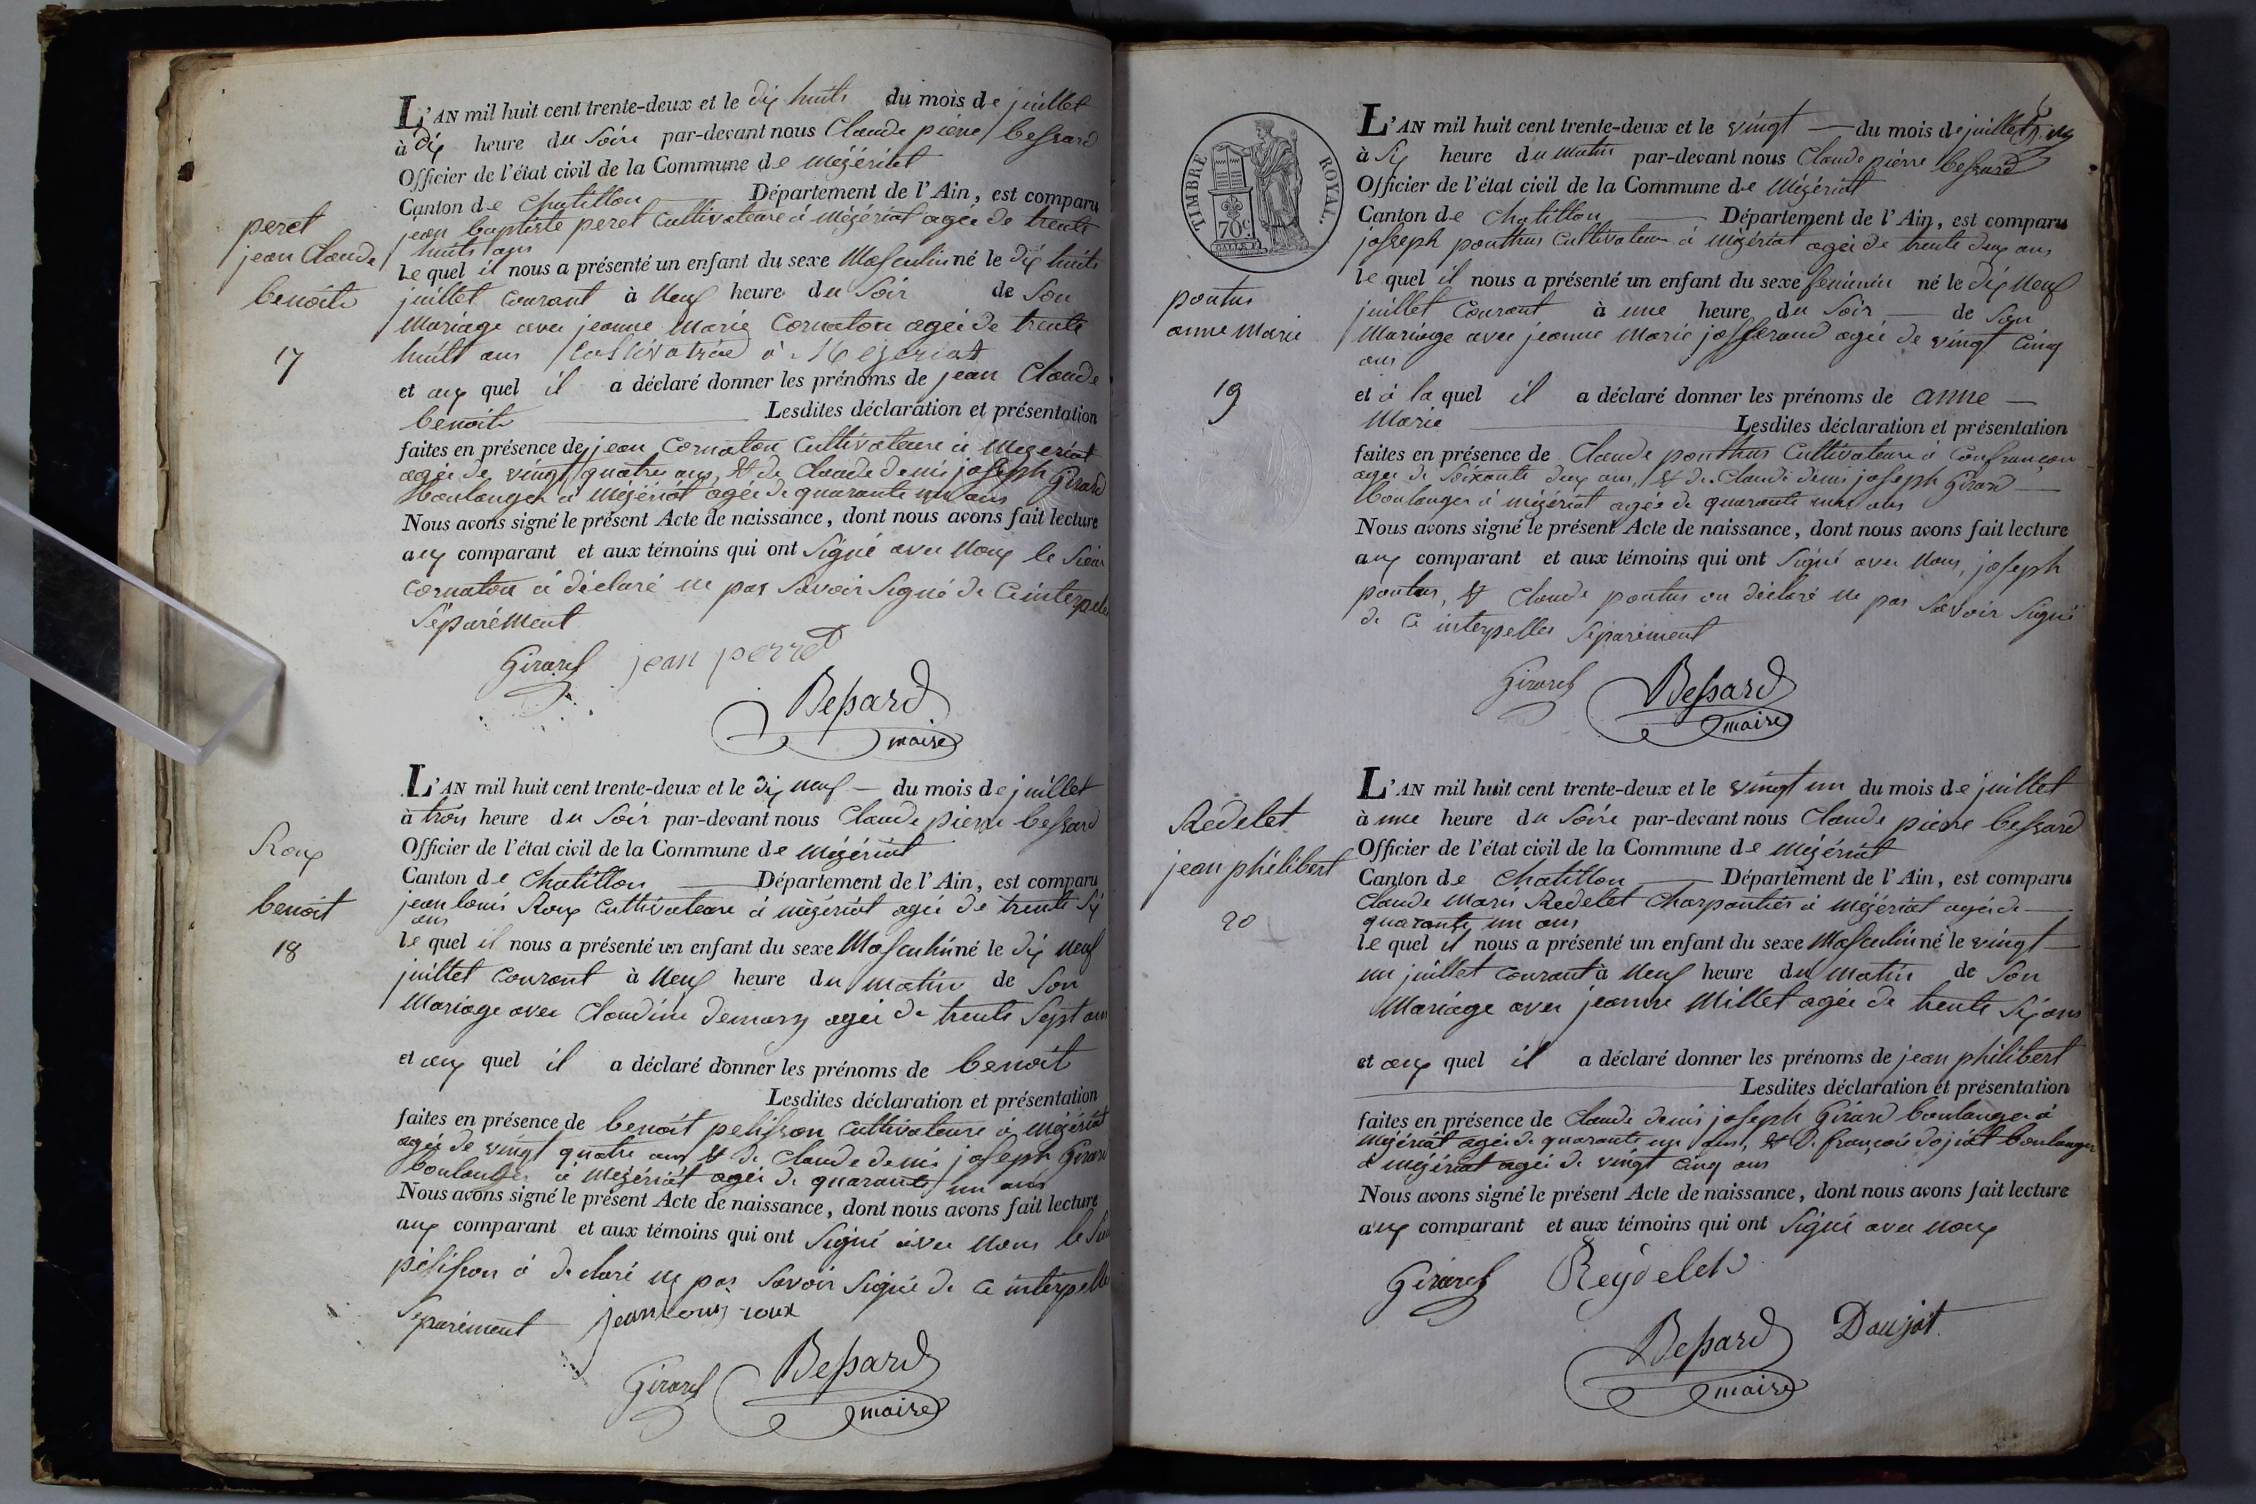 L'AN mil huit cent trente-deux et le dix huits du mois de juillet
à dix heure du Soire par-devant nous Claude pierre bessard
Officier de l'état civil de la Commune de mézériat
Canton de Chatillon Département de l'Ain, est comparu
jean baptiste peret Cultivateure à mézériat agée de trente
huits ans
le quel il nous a présenté un enfant du sexe Masculin né le dix huits
juillet courant à Neuf heure du Soir de Son
Mariage avec jeanne Marie Cornaton agée de trente
huits ans Cultivatrice à Mezeriat
et aux quel il a déclaré donner les prénoms de jean Claude
benoits Lesdites déclaration et présentation
faites en présence de jean Cornaton Cultivateure à Mezeriat
agée de vingt quatre ans, & de Claude denis joseph Girard
boulanger à Mézériat agée de quarante un ans
Nous avons signé le présent Acte de naissance, dont nous avons fait lecture
aux comparant et aux témoins qui ont Signé avec Nous le Sieur
Cornaton à déclaré ne pas Savoir Signé de Ce interpele
Séparément
Girard jean perret
Bessard
maire
peret
jean Claude
benoits
17
L'AN mil huit cent trente-deux et le dix neuf du mois de juillet
à trois heure du Soir par-devant nous Claude pierre bessard
Officier de l'état civil de la Commune de mézériat
Canton de Chatillon Département de l'Ain, est comparu
jean louis Roux Cultivateure à mézériat agée de trente Six
ans
le quel il nous a présenté un enfant du sexe Masculin né le dix neuf
juillet courant à Neuf heure du matin de Son
Mariage avec Claudine demary agée de trente Sept ans
et aux quel il a déclaré donner les prénoms de benoit
Lesdites déclaration et présentation
faites en présence de benoit pelisson Cultivateure à mézériat
agée de vingt quatre ans & de Claude denis joseph Girard
boulanger à Mezériat agée de quarante un ans
Nous avons signé le présent Acte de naissance, dont nous avons fait lecture
aux comparant et aux témoins qui ont Signé avec Nous le Sieur
pélisson à declaré ne pas Savoir Signé de Ce interpelle
Séparément jean louis roux
Girard Bessard
maire
Roux
benoit
18
TIMBRE ROYAL
70c.
L'AN mil huit cent trente-deux et le vingt du mois de juillet
à Six heure du matin par-devant nous Claude pierre bessard
Officier de l'état civil de la Commune de Mézériat
Canton de Chatillon Département de l'Ain, est comparu
joseph ponthus Cultivateur à Mézériat agée de trente deux ans
le quel il nous a présenté un enfant du sexe feminin né le dix Neuf
juillet Courant à une heure du Soir de Son
Mariage avec jeanne Marie josserand agée de vingt Cinq
ans
et à la quel il a déclaré donner les prénoms de anne
Marie Lesdites déclaration et présentation
faites en présence de Claude ponthus Cultivateure à Confrançon
agée de Soixante deux ans, & de Claude denis joseph Girard
boulanger à mézériat agée de quarante un ans
Nous avons signé le présent Acte de naissance, dont nous avons fait lecture
aux comparant et aux témoins qui ont Signé avec Nous, joseph
pontus, & Claude pontus on déclaré ne pas Savoir Signé
de Ce interpelles Séparément
Girard Bessard
maire
pontus
anne Marie
19
L'AN mil huit cent trente-deux et le vingt un du mois de juillet
à une heure du Soire par-devant nous Claude pierre bessard
Officier de l'état civil de la Commune de mézériat
Canton de Chatillon Département de l'Ain, est comparu
Claude Marie Redelet Charpentier à mézériat agée de
quarante un ans
le quel il nous a présenté un enfant du sexe Masculin né le vingt
un juillet courant à Neuf heure du matin de Son
Mariage avec jeanne Millet agée de trente Six ans
et aux quel il a déclaré donner les prénoms de jean philibert
Lesdites déclaration et présentation
faites en présence de Claude denis joseph Girard boulanger à
mézériat agée de quarante un ans, & de françois dojat boulanger
à mézériat agée de vingt Cinq ans
Nous avons signé le présent Acte de naissance, dont nous avons fait lecture
aux comparant et aux témoins qui ont Signé avec nous
Girard Reydelet
Bessard Daujat
maire
Redelet
jean philibert
20